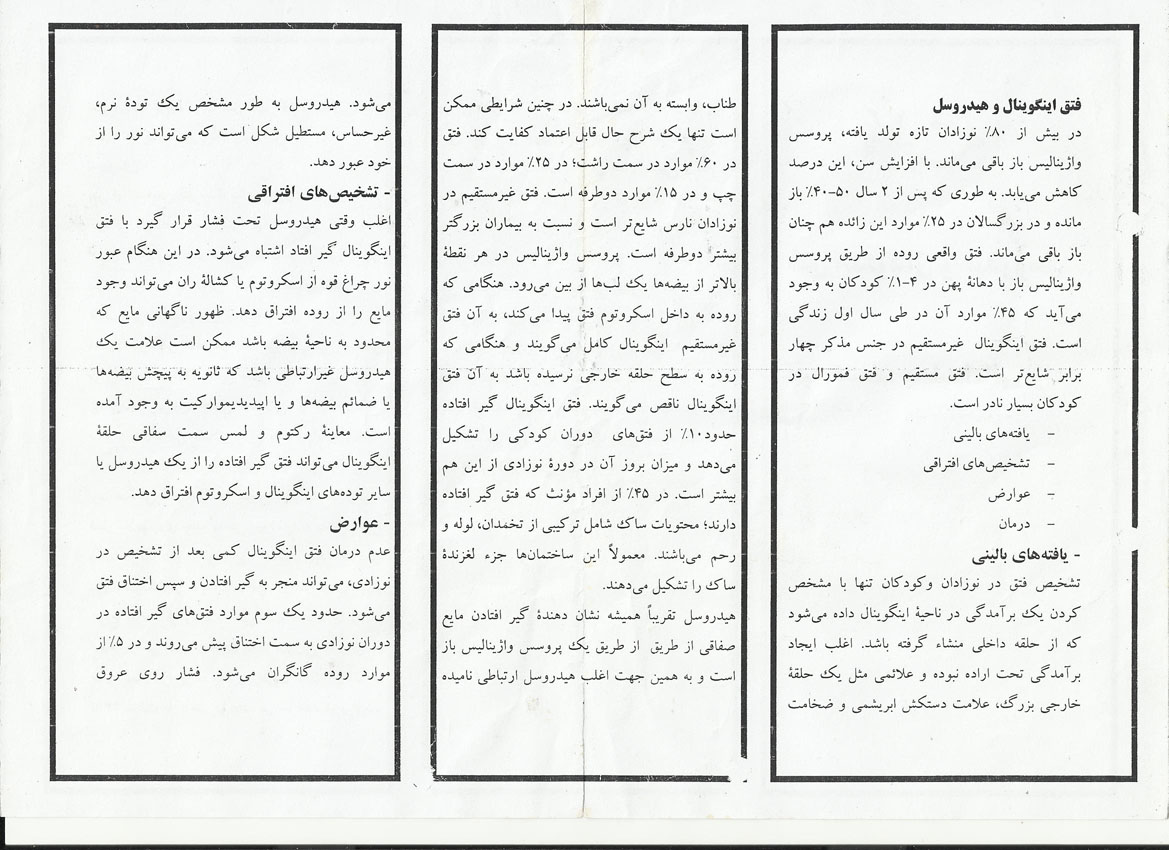 فتق اینگوینال و هیدروسل
در بیش از ۸۰٪ نوزادان تازه تولد یافته، پروسس
واژینالیس باز باقی می‌ماند. با افزایش سن، این درصد
کاهش می‌یابد. به طوری که پس از ۲ سال ۵۰-۴۰٪ باز
مانده و در بزرگسالان در ۲۵٪ موارد این زائده هم چنان
باز باقی می‌ماند. فتق واقعی روده از طریق پروسس
واژینالیس باز با دهانهٔ پهن در ۴-۱٪ کودکان به وجود
می‌آید که ۴۵٪ موارد آن در طی سال اول زندگی
است. فتق اینگوینال غیرمستقیم در جنس مذکر چهار
برابر شایع‌تر است. فتق مستقیم و فتق فمورال در
کودکان بسیار نادر است.
- یافته‌های بالینی
- تشخیص‌های افتراقی
- عوارض
- درمان
- یافته‌های بالینی
تشخیص فتق در نوزادان وکودکان تنها با مشخص
کردن یک برآمدگی در ناحیهٔ اینگوینال داده می‌شود
که از حلقه داخلی منشاء گرفته باشد. اغلب ایجاد
برآمدگی تحت اراده نبوده و علائمی مثل یک حلقهٔ
خارجی بزرگ، علامت دستکش ابریشمی و ضخامت
طناب، وابسته به آن نمی‌باشند. در چنین شرایطی ممکن
است تنها یک شرح حال قابل اعتماد کفایت کند. فتق
در ۶۰٪ موارد در سمت راشت؛ در ۲۵٪ موارد در سمت
چپ و در ۱۵٪ موارد دوطرفه است. فتق غیرمستقیم در
نوزادان نارس شایع‌تر است و نسبت به بیماران بزرگتر
بیشتر دوطرفه است. پروسس واژینالیس در هر نقطهٔ
بالاتر از بیضه‌ها یک لب‌ها از بین می‌رود. هنگامی که
روده به داخل اسکروتوم فتق پیدا می‌کند، به آن فتق
غیرمستقیم اینگوینال کامل می‌گویند و هنگامی که
روده به سطح حلقه خارجی نرسیده باشد به آن فتق
اینگوینال ناقص می‌گویند. فتق اینگوینال گیر افتاده
حدود۱۰٪ از فتق‌های دوران کودکی را تشکیل
می‌دهد و میزان بروز آن در دورهٔ نوزادی از این هم
بیشتر است. در ۴۵٪ از افراد مؤنث که فتق گیر افتاده
دارند؛ محتویات ساک شامل ترکیبی از تخمدان، لوله و
رحم می‌باشند. معمولاً این ساختمان‌ها جزء لغزندهٔ
ساک را تشکیل می‌دهند.
هیدروسل تقریباً همیشه نشان دهندهٔ گیر افتادن مایع
صفاقی از طریق از طریق یک پروسس واژینالیس باز
است و به همین جهت اغلب هیدروسل ارتباطی نامیده
می‌شود. هیدروسل به طور مشخص یک تودهٔ نرم،
غیرحساس، مستطیل شکل است که می‌تواند نور را از
خود عبور دهد.
- تشخیص‌های افتراقی
اغلب وقتی هیدروسل تحت فشار قرار گیرد با فتق
اینگوینال گیر افتاد اشتباه می‌شود. در این هنگام عبور
نور چراغ قوه از اسکروتوم یا کشالهٔ ران می‌تواند وجود
مایع را از روده افتراق دهد. ظهور ناگهانی مایع که
محدود به ناحیهٔ بیضه باشد ممکن است علامت یک
هیدروسل غیرارتباطی باشد که ثانویه به پیچش بیضه‌ها
یا ضمائم بیضه‌ها و یا اپیدیدیموارکیت به وجود آمده
است. معاینهٔ رکتوم و لمس سمت سفاقی حلقهٔ
اینگوینال می‌تواند فتق گیر افتاده را از یک هیدروسل یا
سایر توده‌های اینگوینال و اسکروتوم افتراق دهد.
- عوارض
عدم درمان فتق اینگوینال کمی بعد از تشخیص در
نوزادی، می‌تواند منجر به گیر افتادن و سپس اختناق فتق
می‌شود. حدود یک سوم موارد فتق‌های گیر افتاده در
دوران نوزادی به سمت اختناق پیش می‌روند و در ۵٪ از
موارد روده گانگران می‌شود. فشار روی عروق